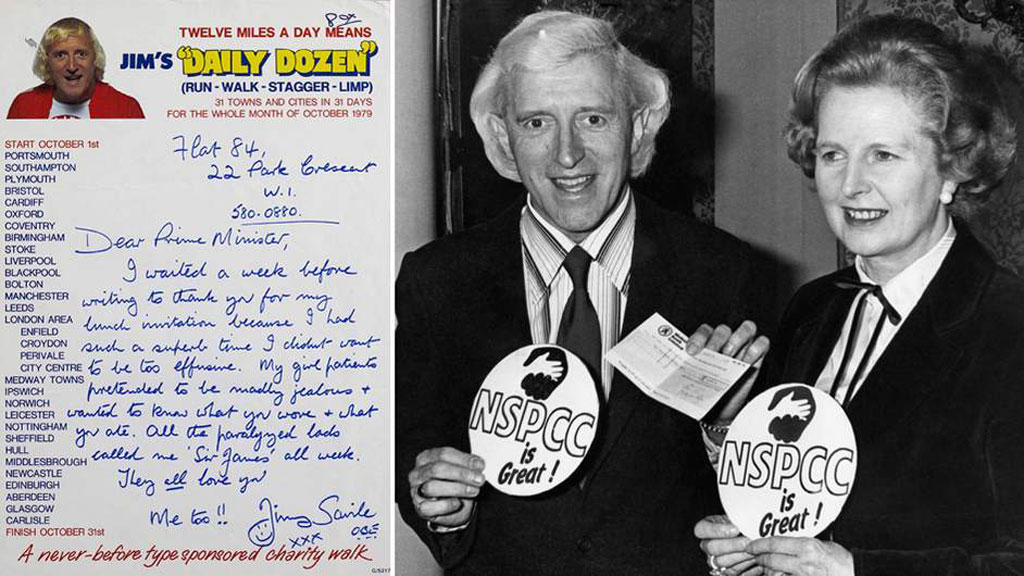 TWELVE MILES A DAY MEANS
JIM'S "DAILY DOZEN"
(RUN - WALK - STAGGER - LIMP)
31 TOWNS AND CITIES IN 31 DAYS
FOR THE WHOLE MONTH OF OCTOBER 1979
START OCTOBER 1st
PORTSMOUTH
SOUTHAMPTON
PLYMOUTH
BRISTOL
CARDIFF
OXFORD
COVENTRY
BIRMINGHAM
STOKE
LIVERPOOL
BLACKPOOL
BOLTON
MANCHESTER
LEEDS
LONDON AREA
ENFIELD
CROYDON
PERIVALE
CITY CENTRE
MEDWAY TOWNS
IPSWICH
NORWICH
LEICESTER
NOTTINGHAM
SHEFFIELD
HULL
MIDDLESBROUGH
NEWCASTLE
EDINBURGH
ABERDEEN
GLASGOW
CARLISLE
FINISH OCTOBER 31st
Flat 84,
22 Park Crescent
W.1.
580-0880.
Dear Prime Minister,
I waited a week before
writing to thank you for my
lunch invitation because I had
such a superb time I didnt want
to be too effusive. My girl patients
pretended to be madly jealous +
wanted to know what you wore + what
you ate. All the paralyzed lads
called me 'Sir James' all week.
They all love you
Me too!! Jimmy Savile
OBE
xxx
A never-before type sponsored charity walk
NSPCC
is
Great!
NSPCC
is
Great!